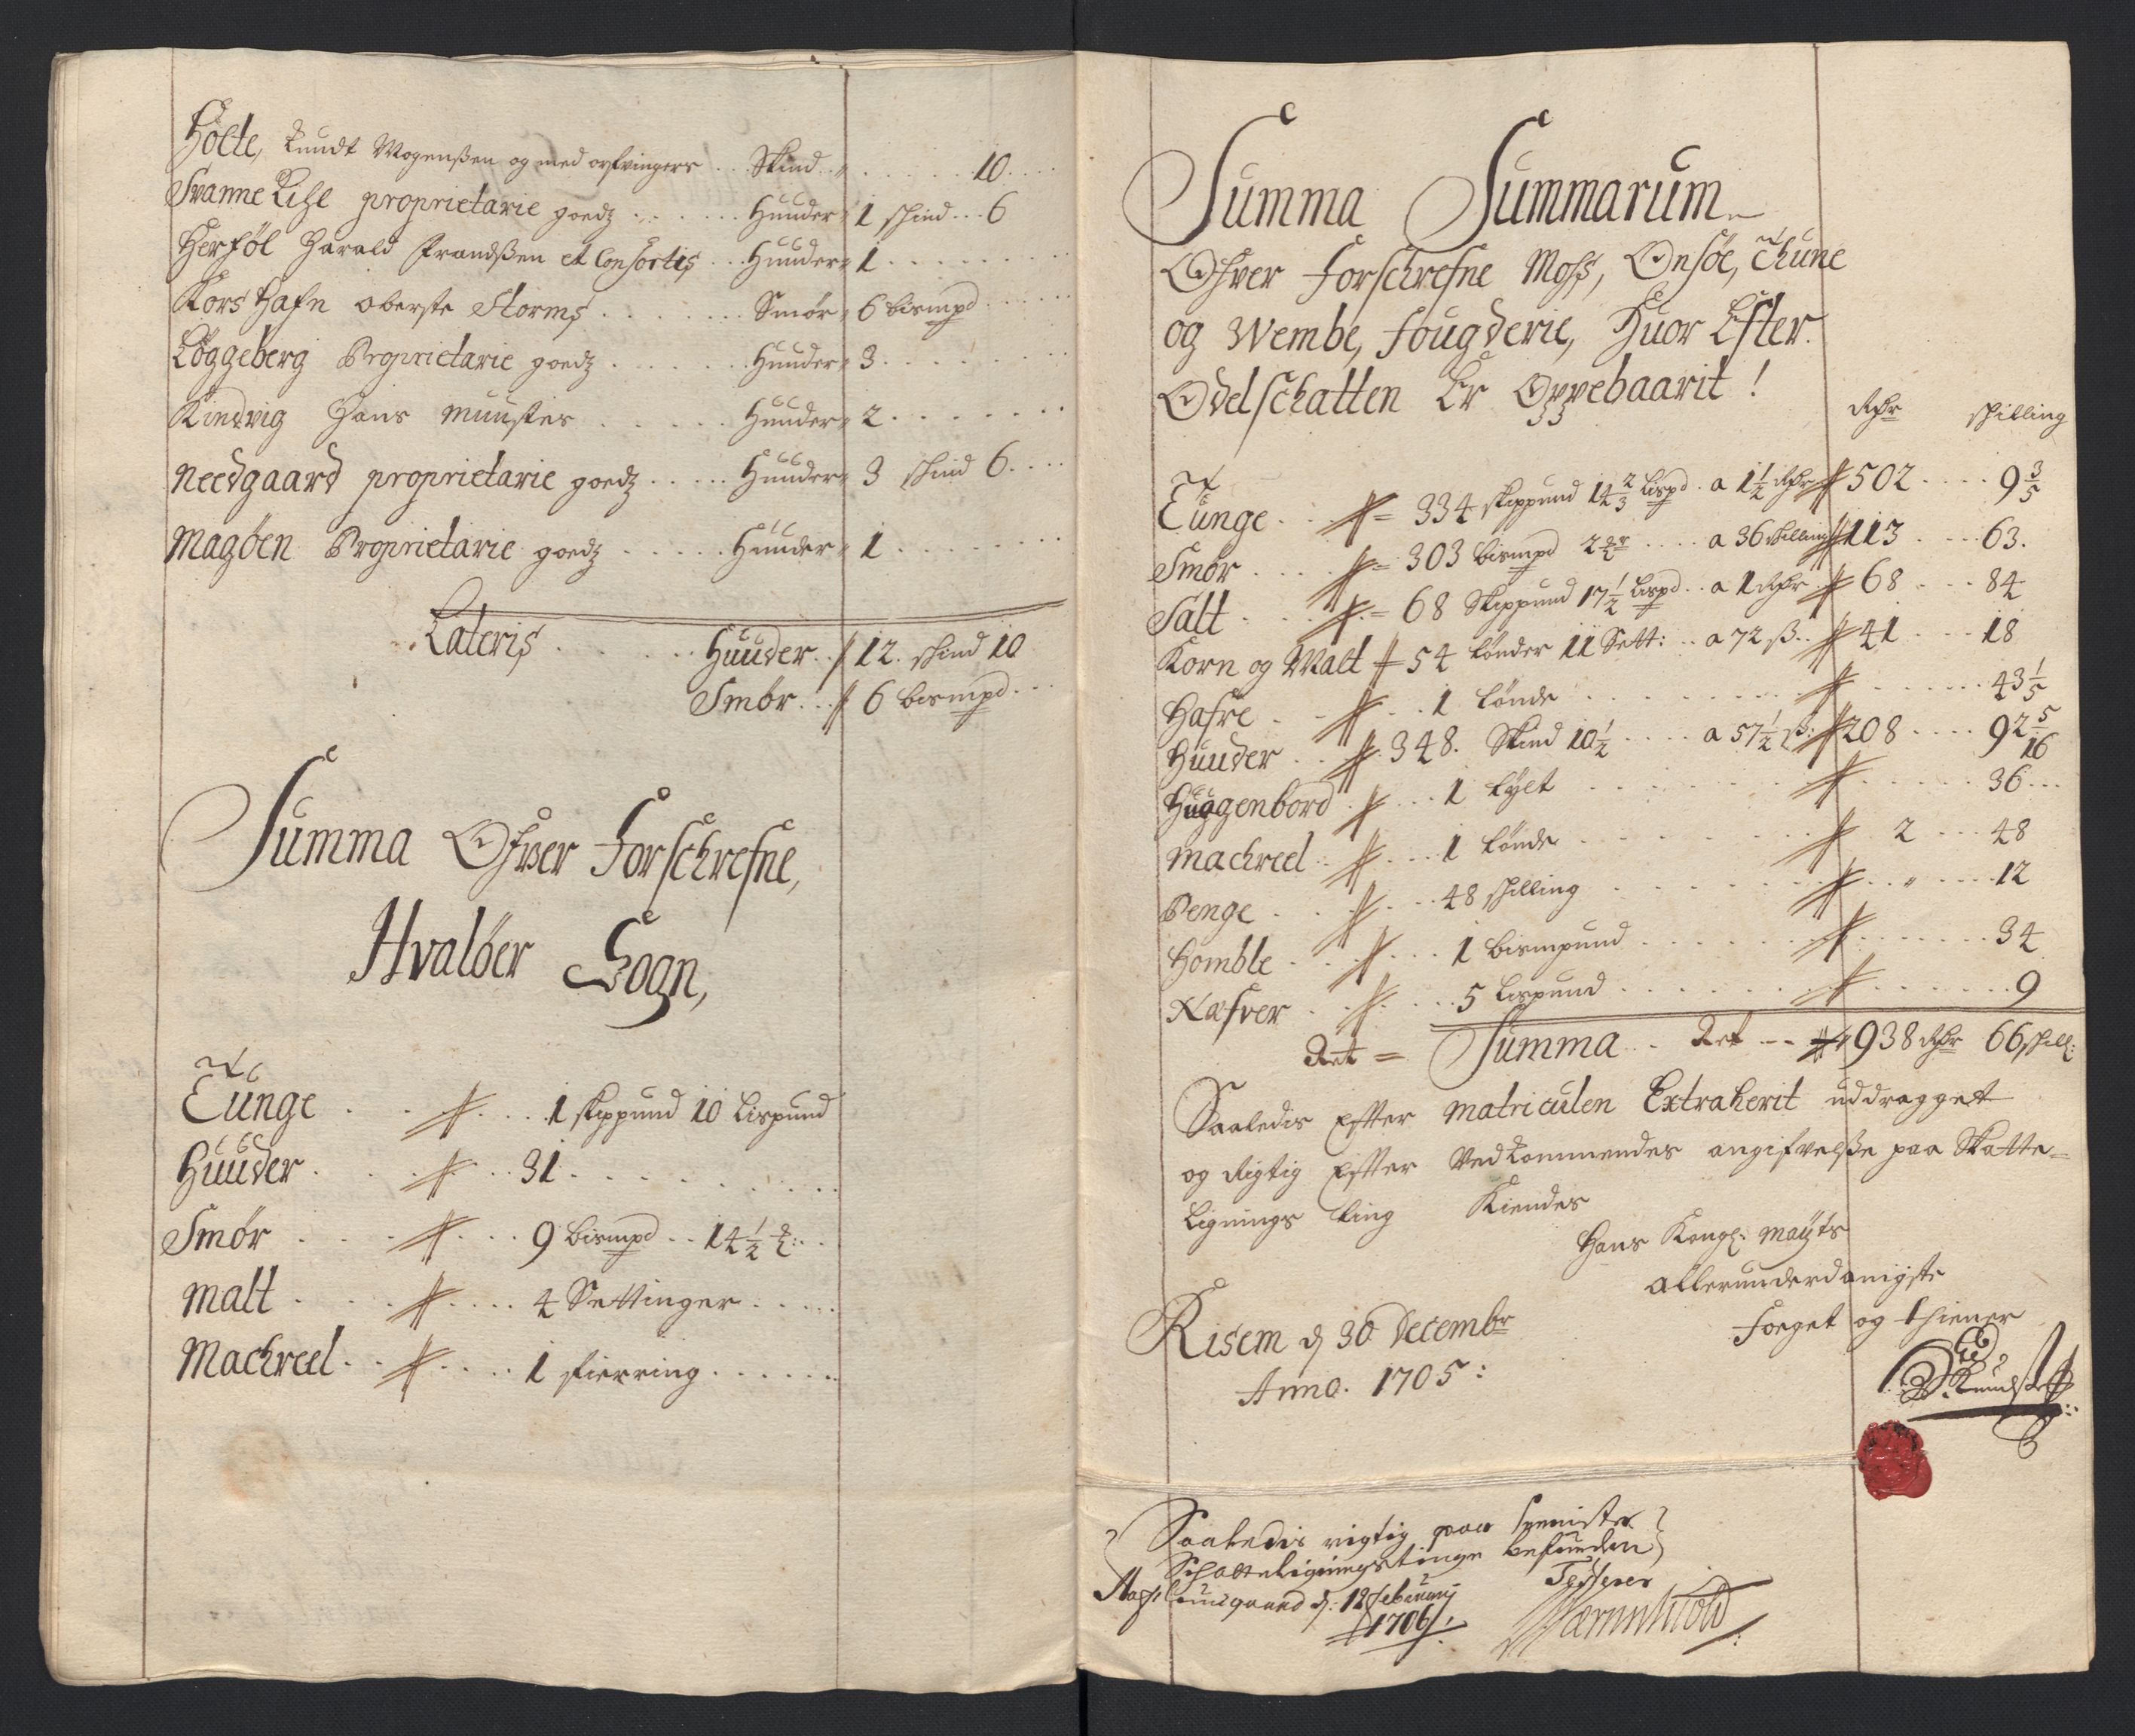 Holte, Knudt Mogenßen og med arfvinger .. Skind .. 10
Svanne Kihl proprietarie goedz ...... Huuder 1 skind .. 6
Herføl Harald Frandßen et Consortis .. Huuder 1
Kors Hafn oberste Storms ....... Smør 6 bismpd
Løggeberg Proprietarie goedz ...... Huuder 3
Kindvig Hans Muuster ..... Huuder 2
Needgaard proprietarie goedz ..... Huuder 3 skind 6
Magøen Proprietarie goedz ..... Huuder 1
Lateris ..... Huuder .. 12. skind 10
Smør ... 6 bismpd
Summa Ofver Forschrefne,
Hvaløer Sogn,
Tunge .... 1 skippund 10 Lispund
Huuder .... 31
Smør .... 9 bismpd .. 14 1/2
Malt .... 4 Settinger
Machreel .... 1 fierring
Summa Summarum
Ofver Forschrefne Moss, Onsøe, Thune
og Wembe, Fougderie, Huor Efter
Odelschatten Er Oppebaarit!
Rdr skilling
Tunge .. 334 skippund 14 2/3 Lispd. a 1 1/2 Rdr 502 .... 9 3/5
Smør .... 303 bismpd 2 .... a 36 skilling 113 ... 63.
Salt .... 68 Skippund 17 1/2 Lispd .. a 1 Rdr 68 ... 84
Korn og Malt 54 tønder 11 Sett: .. a 72 ß .. 41 ... 18
Hafre .... 1 tønde ........ 43 1/5
Huuder .. 348. Skind 10 1/2 .... a 57 1/2 ß: 208 .... 92 5/16
Huggenbord .... 1 tylt ........ 36
Machreel .... 1 tønde ........ 2 ... 48
Penge .... 48 skilling ........ 12
Homble .... 1 bismpund ........ 34
Næfver .... 5 Lispund ........ 9
Summa .. 938 Rdr 66 skill:
Saaledis Efter Matriculen Extraherit uddragget
og Rigtig Efter Vedkommendes angifvelße paa Skatte-
Lignings ting Kiendes
Hans Kongl: Mayts
allerunderdanigste
Foeget og thiener
Risem d 30 Decembr
Anno. 1705:
Saaledis rigtig paa
Schatteligningstinge befunden
Testerer
d: 12 Februarij
1706